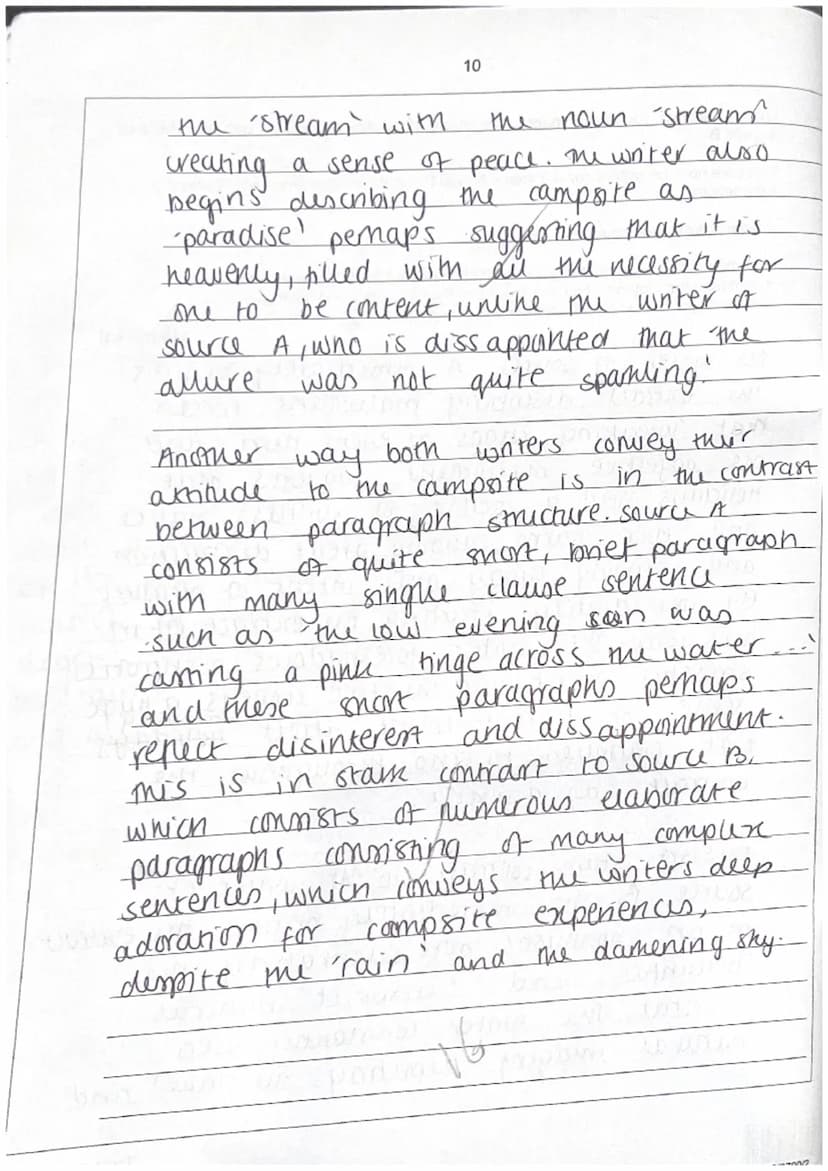 10
the 'stream' with the noun 'stream'
creating a sense of peace. The writer also
begins describing the campsite as
'paradise' perhaps suggesting that it is
heavenly, filled with all the necessity for
one to be content, unlike the writer of
source A, who is dissappointed that 'the
allure was not quite sparkling.'
Another way both writers convey their
attitude to the campsite is in the contrast
between paragraph structure. source A
consists of quite short, brief paragraph
with many single clause sentence
such as 'the low evening soon was
casting a pink tinge across the water...'
and these short paragraphs perhaps
reflect disinterest and dissappointment.
This is in stark contrast to source B,
which consists of numerous elaborate
paragraphs consisting of many complex
sentences, which conveys the writers deep
adoration for campsite experiences,
despite the 'rain' and the damening sky.
16